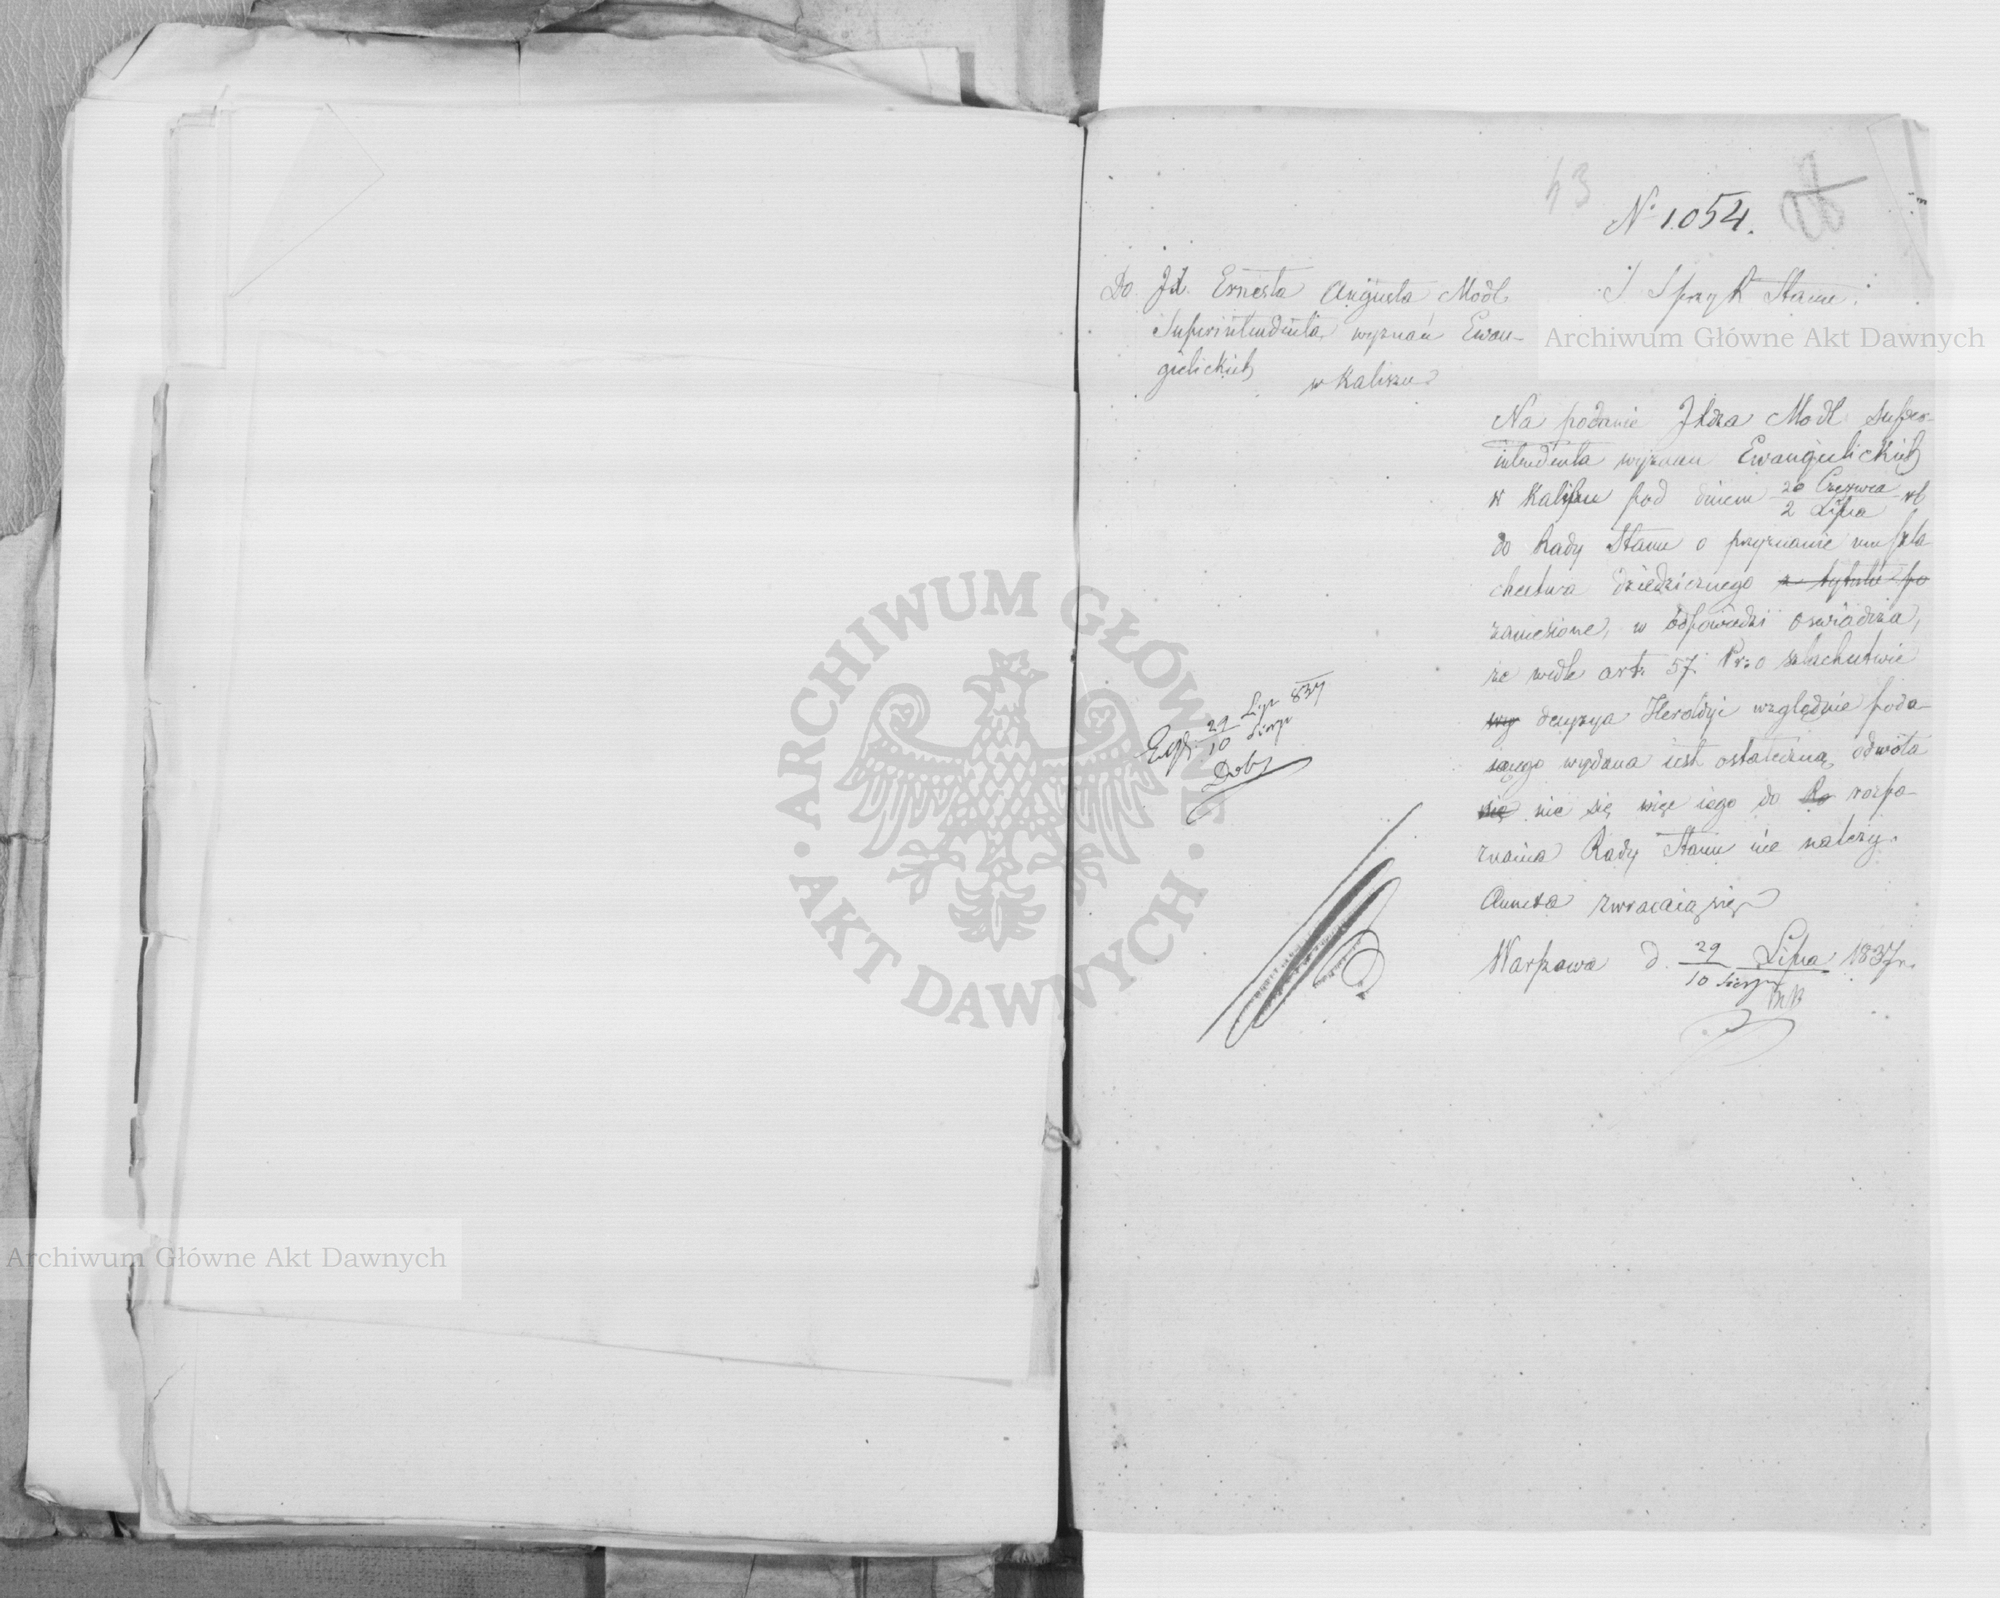 43
N: 1054.
Do Jx. Ernesta Augusta Modl
Superintendenta wyznań Ewan-
gielickich
w Kaliszu
S Stanu
Archiwum Główne Akt Dawnych
Na podanie Modl Super-
intendenta wyznań Ewangielickich
w Kaliszu pod dniem 20 Czerwca
2 Lipca rb
do Rady Stanu o przyznanie mu szla-
chectwa dziedzicznego z tytułu po
zaniesione, w odpowiedzi oświadcza,
że wedle art: 57. Pr: o szlachectwie
wy decyzya Heroldyi względnie poda-
iącego wydana iest ostateczną, odwoła
się nie się więc iego do Ra rozpo-
znania Rady Stanu nie należy.
Annexa zwracaią się
Warszawa d. 29 Lipca 1837 r.
10 Sierpn
Exp. 29 Lip 837
10 Sierp
Dob
ARCHIWUM GŁÓWNE
AKT DAWNYCH
Archiwum Główne Akt Dawnych